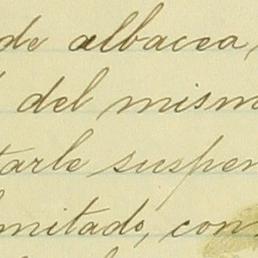 de albacea,
del mism
tarle suspen
mitado, con